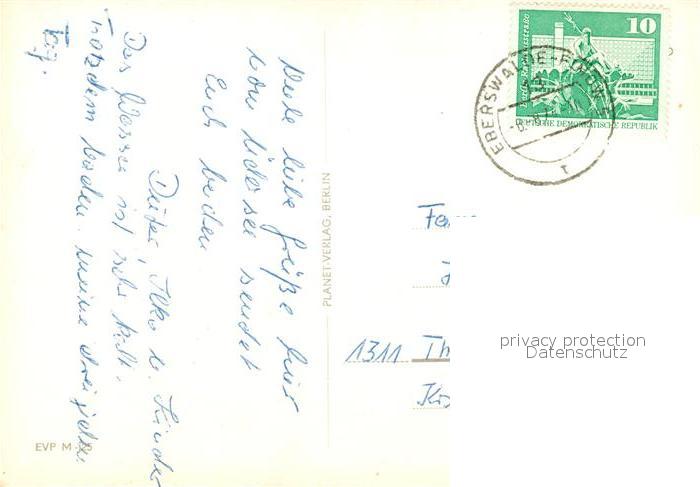 Viele liebe Grüße hier
vom Üdersee sendet
Euch beiden
Dieter, Ilka u. Kinder
Das Wasser ist sehr kalt.
Trotzdem baden meine drei jeden
Tag.
PLANET-VERLAG, BERLIN
EVP M
10
DEUTSCHE DEMOKRATISCHE REPUBLIK
EBERSWALDE-FINOW
1
Fa
1311 Th
privacy protection
Datenschutz